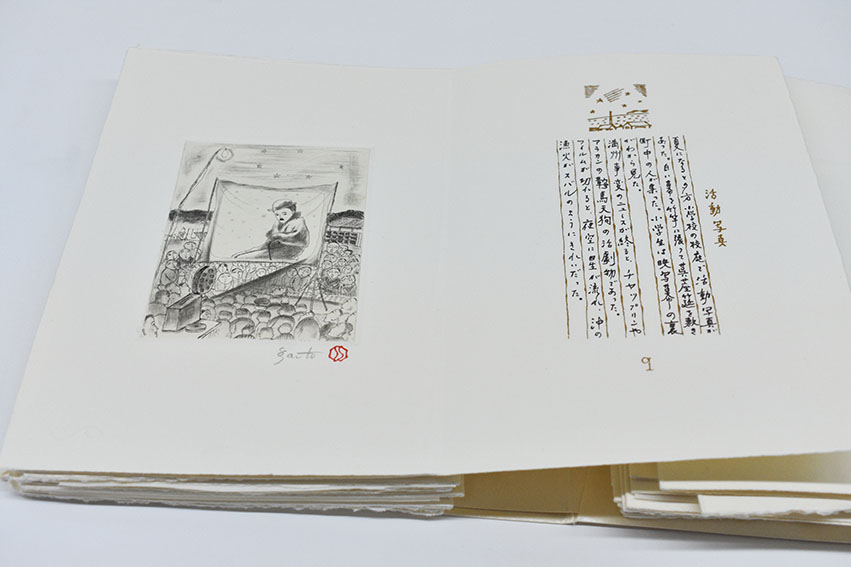 活動写真
夏になると夕方、小学校の校庭で活動写真が
あった。白い幕を竹竿に張って を敷き
町中の人が集った。小学生は映写幕の裏
がわから見た。
満州事変のニュースが終ると、チャップリンや
アラカンの鞍馬天狗の活劇物であった。
フィルムが切れると夜空に星が流れ、沖の
漁火がスバルのようにきれいだった。
9
Saito